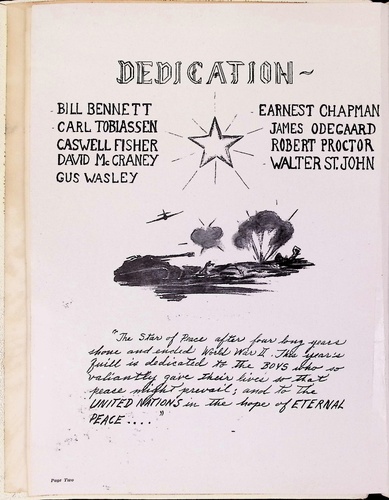 DEDICATION~
BILL BENNETT
CARL TOBIASSEN
CASWELL FISHER
DAVID McCRANEY
GUS WASLEY
EARNEST CHAPMAN
JAMES ODEGAARD
ROBERT PROCTOR
WALTER ST. JOHN
"The Star of Peace after four long years
shone and ended World War II. This year's
Quill is dedicated to the BOYS who so
valiantly gave their lives so that
peace might prevail; and to the
UNITED NATIONS in the hope of ETERNAL
PEACE...."
Page Two